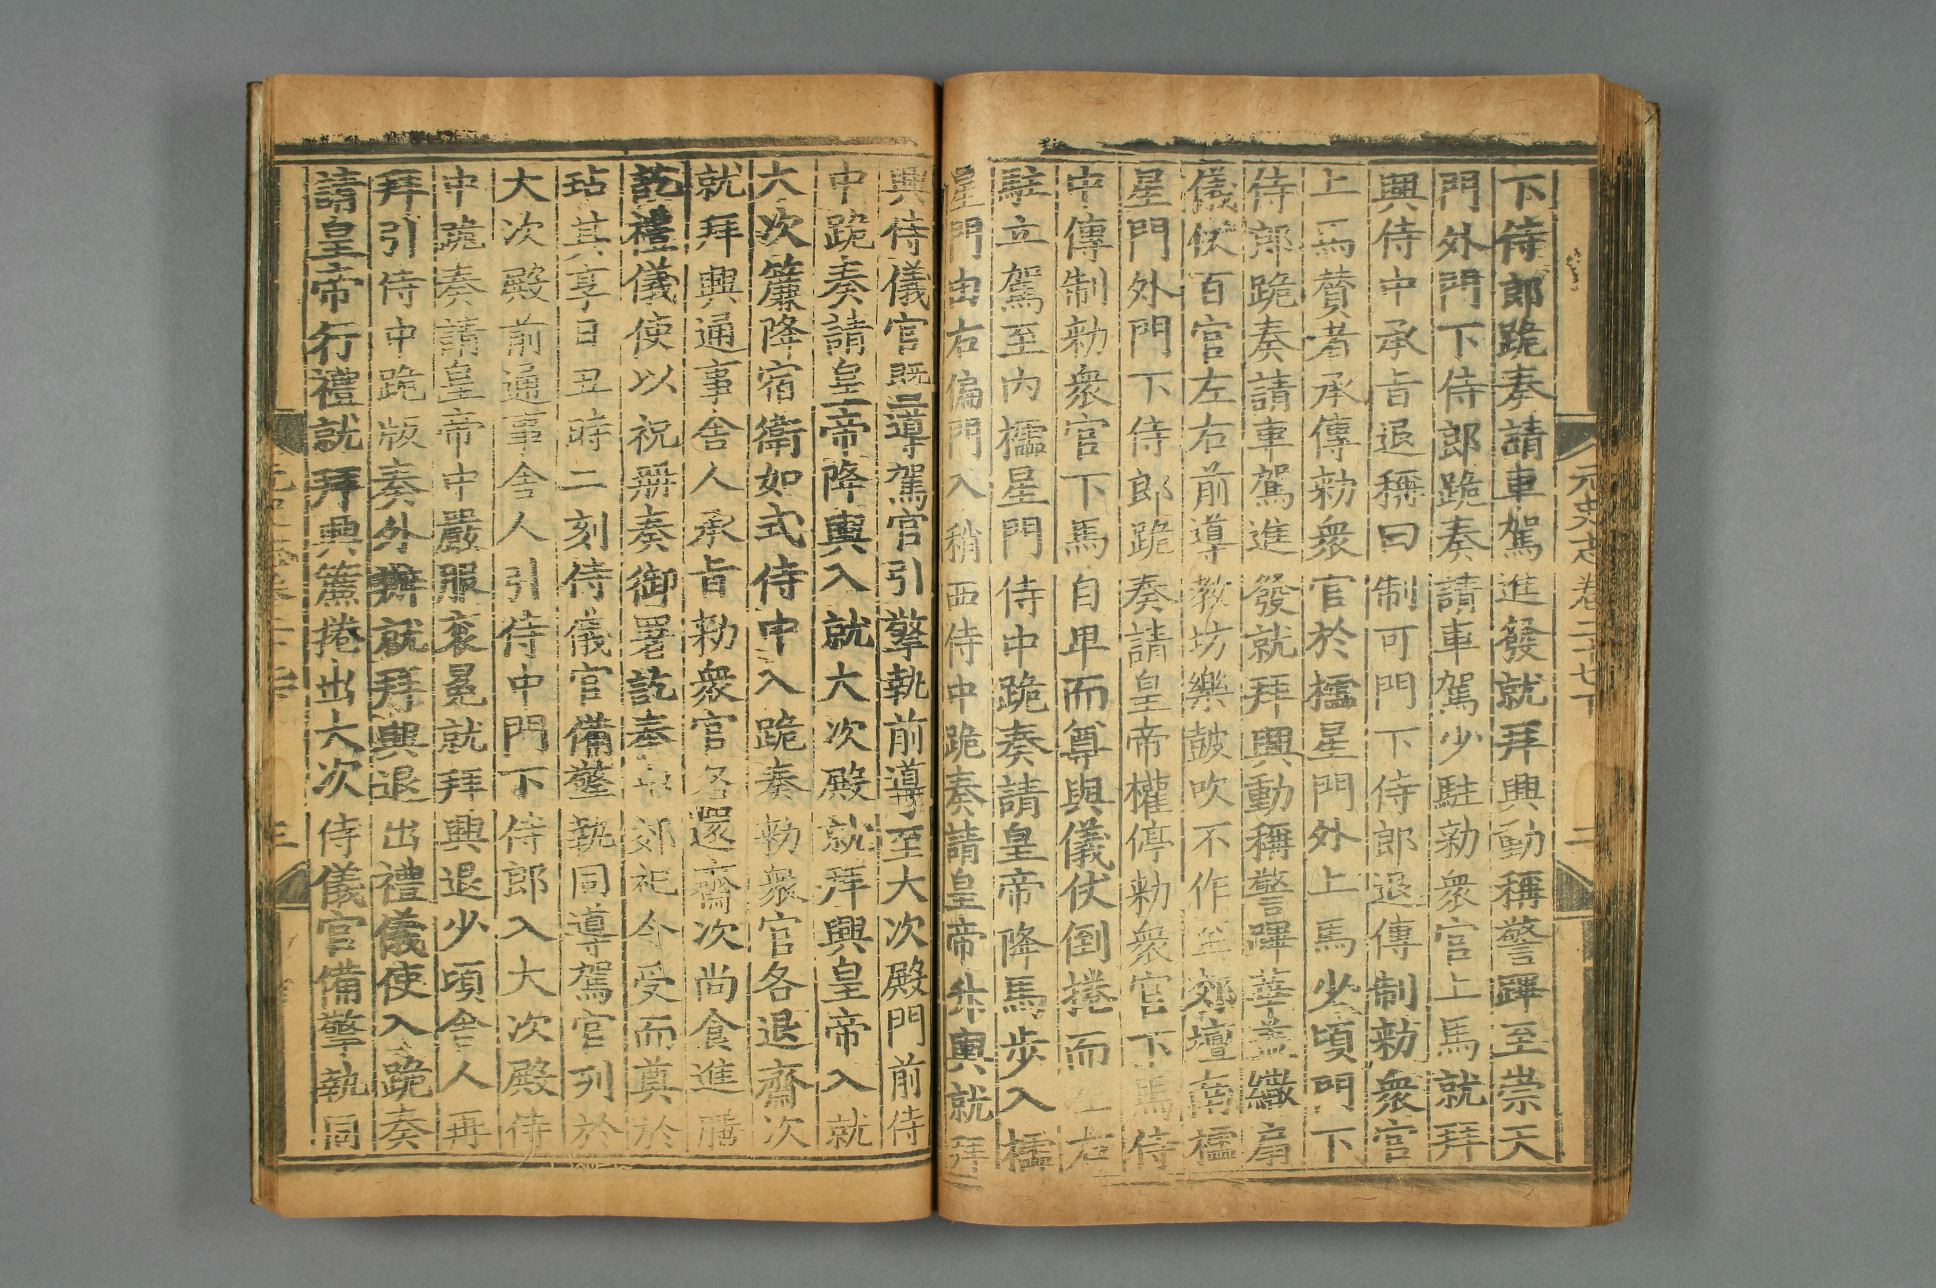 下侍郎跪奏請車駕進發就拜興動稱警蹕至崇天
門外門下侍郎跪奏請車駕少駐勑衆官上馬就拜
興侍中承旨退稱曰制可門下侍郎退傳制勑衆官
上馬賛者承傳勑衆官於欞星門外上馬少頃門下
侍郎跪奏請車駕進發就拜興動稱警蹕華蓋繖扇
儀仗百官左右前導教坊樂鼓吹不作至郊壇南欞
星門外門下侍郎跪奏請皇帝權停勑衆官下馬侍
中傳制勑衆官下馬自卑而尊與儀仗倒捲而左右
駐立駕至内欞星門侍中跪奏請皇帝降馬步入欞
星門由右偏門入稍西侍中跪奏請皇帝升輿就拜
興侍儀官旣導駕官引擎執前導至大次殿門前侍
中跪奏請皇帝降輿入就大次殿就拜興皇帝入就
大次簾降宿衛如式侍中入跪奏勑衆官各退齋次
就拜興通事舍人承旨勑衆官各還齋次尚食進膳
訖禮儀使以祝册奏御署訖奉出郊祀令受而奠於
坫其享日丑時二刻侍儀官備擎執同導駕官列於
大次殿前通事舍人引侍中門下侍郎入大次殿侍
中跪奏請皇帝中嚴服衮冕就拜興退少頃舍人再
拜引侍中跪版奏外辦就拜興退出禮儀使入跪奏
請皇帝行禮就拜興簾捲出大次侍儀官備擎執同
元史志卷二十七下
二
三